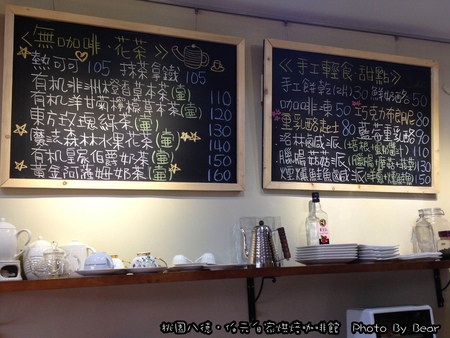 <無咖啡·花茶>
熱可可 105 抹茶拿鐵 105
有机非洲橙香草本茶(壺) 110
有机羊甘南檸檬草本茶(壺) 120
東方玫瑰綠茶(壺) 130
魔法森林水果花茶(壺) 140
有机皇家伯爵奶茶(壺) 150
黃金阿薩姆奶茶(壺) 160
<手工輕食·甜點>
手工餅乾(2片) 30 鮮奶酪 50
咖啡凍 50 巧克力布朗尼 80
重乳酪起士 80 藍莓重乳酪 90
洛林鹹派
臘腸菇菇派 130
燻鮭魚鹹派 150
桃園八德·伯元自家烘焙咖啡館 Photo By Bear